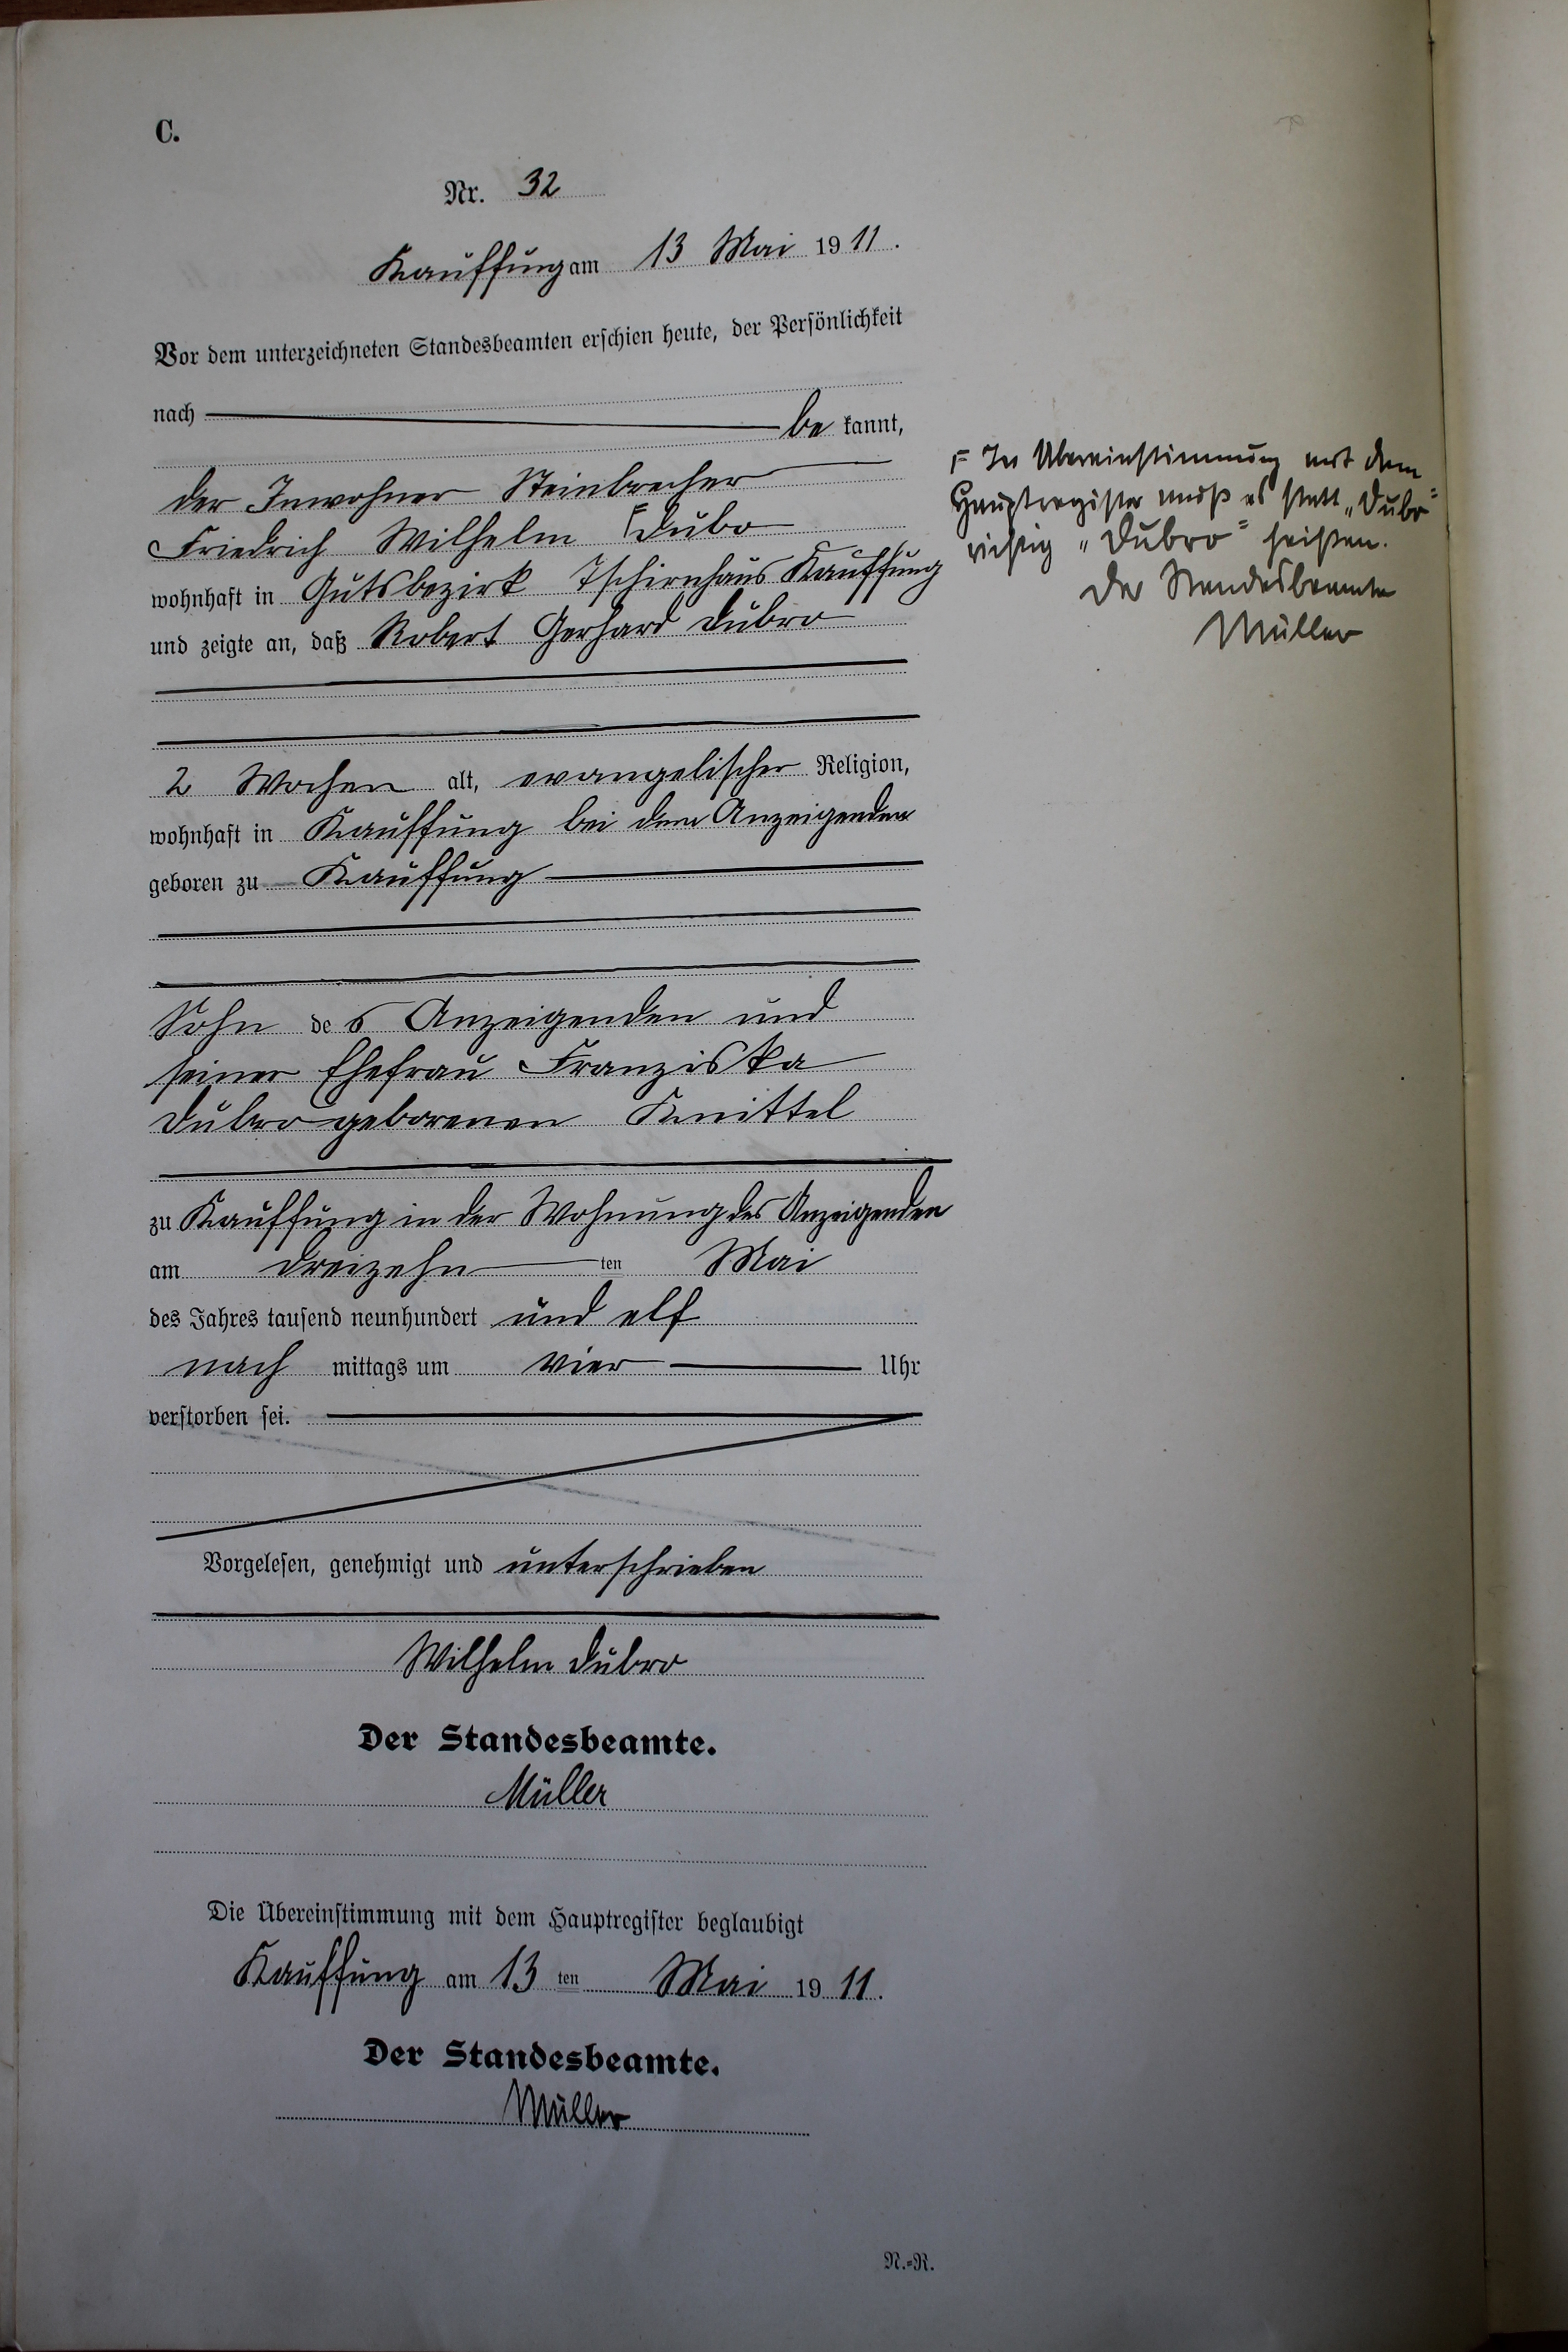 C.
Nr. 32
Kauffung am 13 Mai 1911.
Vor dem unterzeichneten Standesbeamten erschien heute, der Persönlichkeit
nach be kannt,
der Inwohner Steinbrecher
Friedrich Wilhelm Dubo
wohnhaft in Gutsbezirk Tschirnhaus Kauffung
und zeigte an, daß Robert Gerhard Dubro
2 Wochen alt, evangelischer Religion,
wohnhaft in Kauffung bei dem Anzeigenden
geboren zu Kauffung
Sohn des Anzeigenden und
seiner Ehefrau Franziska
Dubro geborenen Knittel
zu Kauffung in der Wohnung des Anzeigenden
am dreizehn ten Mai
des Jahres tausend neunhundert und elf
nach mittags um vier Uhr
verstorben sei.
Vorgelesen, genehmigt und unterschrieben
Wilhelm Dubro
Der Standesbeamte.
Müller
Die Übereinstimmung mit dem Hauptregister beglaubigt
Kauffung am 13 ten Mai 1911.
Der Standesbeamte.
Müller
N.=R.
In Übereinstimmung mit dem
Hauptregister muß es statt „Dubo"
richtig „Dubro" heißen.
Der Standesbeamte
Müller